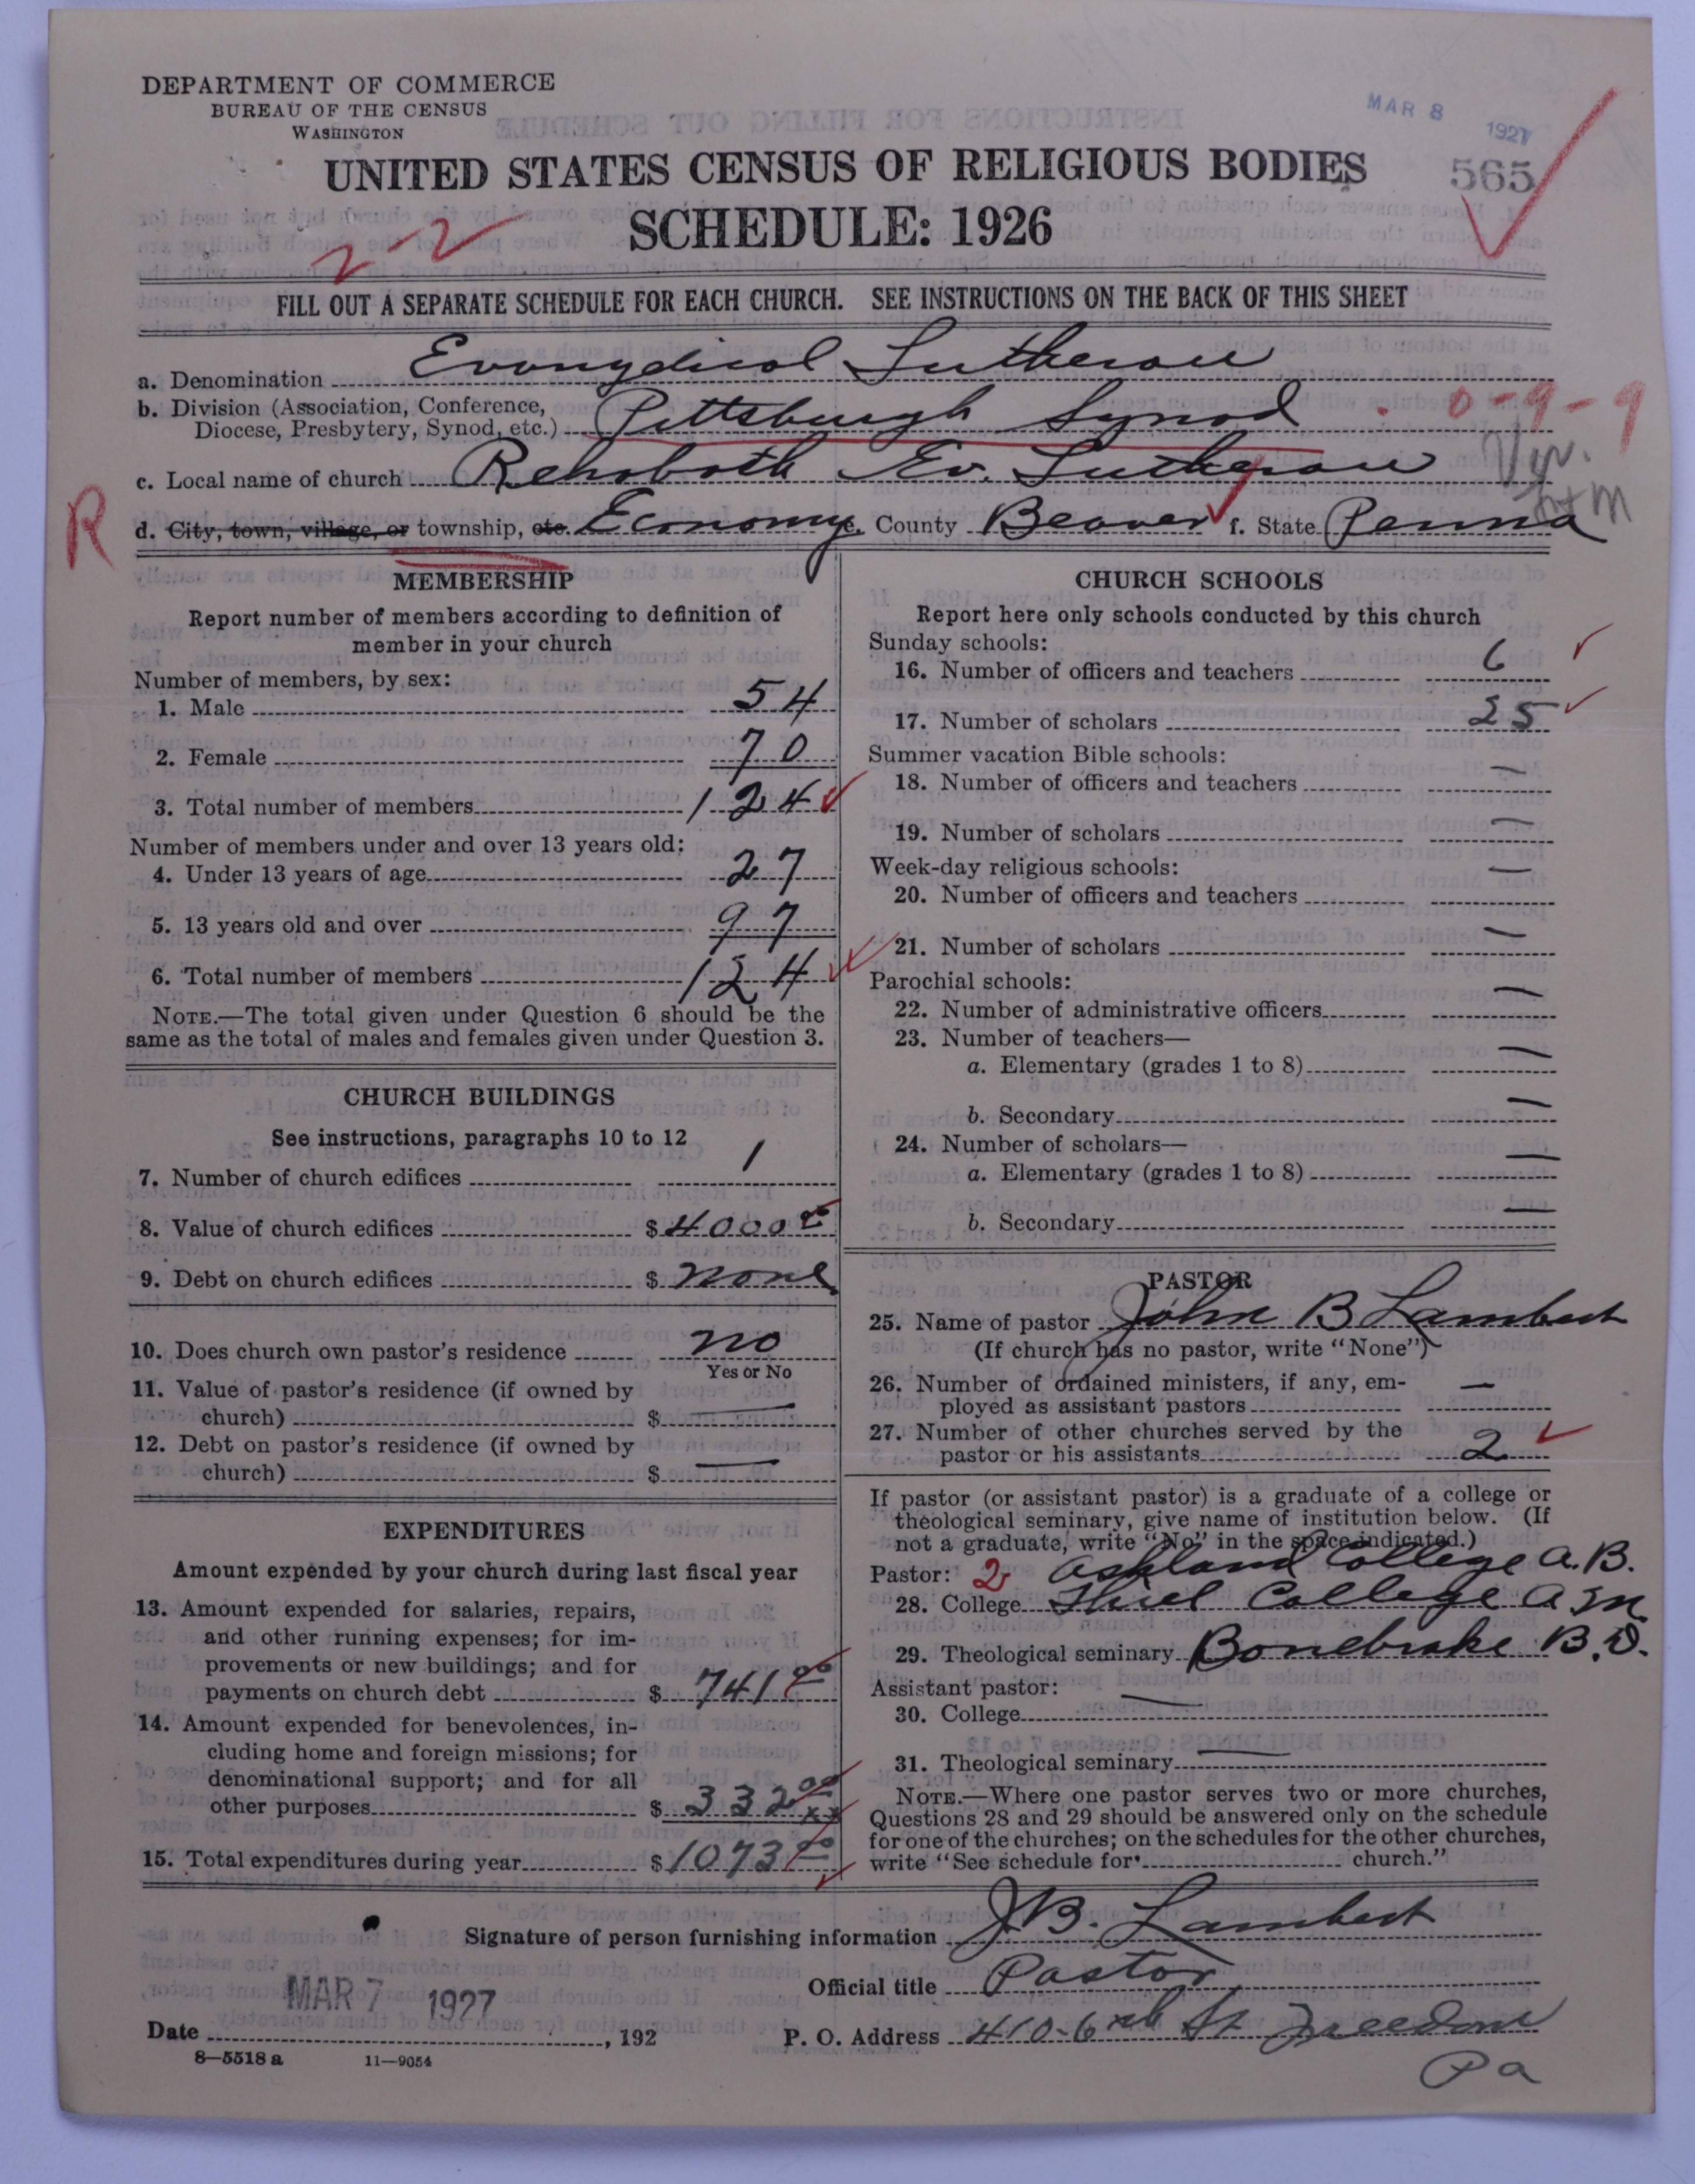 DEPARTMENT OF COMMERCE
BUREAU OF THE CENSUS
WASHINGTON
MAR 8 1927
UNITED STATES CENSUS OF RELIGIOUS BODIES
565
SCHEDULE: 1926
2-2
FILL OUT A SEPARATE SCHEDULE FOR EACH CHURCH. SEE INSTRUCTIONS ON THE BACK OF THIS SHEET
a. Denomination Evangelical Lutheran
b. Division (Association, Conference,
Diocese, Presbytery, Synod, etc.) Pittsburgh Synod 0-9-9
c. Local name of church Rehoboth Ev. Lutheran
R d. City, town, village, or township, etc. Economy e. County Beaver f. State Penna
MEMBERSHIP
Report number of members according to definition of
member in your church
Number of members, by sex:
1. Male 54
2. Female 70
3. Total number of members 124
Number of members under and over 13 years old:
4. Under 13 years of age 27
5. 13 years old and over 97
6. Total number of members 124
NOTE.—The total given under Question 6 should be the
same as the total of males and females given under Question 3.
CHURCH BUILDINGS
See instructions, paragraphs 10 to 12
7. Number of church edifices 1
8. Value of church edifices $ 4000 00
9. Debt on church edifices $ none
10. Does church own pastor's residence no
Yes or No
11. Value of pastor's residence (if owned by
church) $ —
12. Debt on pastor's residence (if owned by
church) $ —
EXPENDITURES
Amount expended by your church during last fiscal year
13. Amount expended for salaries, repairs,
and other running expenses; for im-
provements or new buildings; and for
payments on church debt $ 741 00
14. Amount expended for benevolences, in-
cluding home and foreign missions; for
denominational support; and for all
other purposes $ 332 00 xx
15. Total expenditures during year $ 1073 00
CHURCH SCHOOLS
Report here only schools conducted by this church
Sunday schools:
16. Number of officers and teachers 6
17. Number of scholars 25
Summer vacation Bible schools:
18. Number of officers and teachers —
19. Number of scholars —
Week-day religious schools:
20. Number of officers and teachers —
21. Number of scholars —
Parochial schools:
22. Number of administrative officers —
23. Number of teachers—
a. Elementary (grades 1 to 8) —
b. Secondary —
24. Number of scholars—
a. Elementary (grades 1 to 8) —
b. Secondary —
PASTOR
25. Name of pastor John B Lambert
(If church has no pastor, write "None")
26. Number of ordained ministers, if any, em-
ployed as assistant pastors —
27. Number of other churches served by the
pastor or his assistants 2
If pastor (or assistant pastor) is a graduate of a college or
theological seminary, give name of institution below. (If
not a graduate, write "No" in the space indicated.)
Pastor: 2 Ashland College A.B.
28. College Thiel College A M.
29. Theological seminary Bonebrake B.D.
Assistant pastor: —
30. College
31. Theological seminary —
NOTE.—Where one pastor serves two or more churches,
Questions 28 and 29 should be answered only on the schedule
for one of the churches; on the schedules for the other churches,
write "See schedule for church."
Signature of person furnishing information J.B. Lambert
Official title Pastor
MAR 7 1927
Date , 192
P. O. Address 410-6th St Freedom
Pa
8—5518 a 11—9054